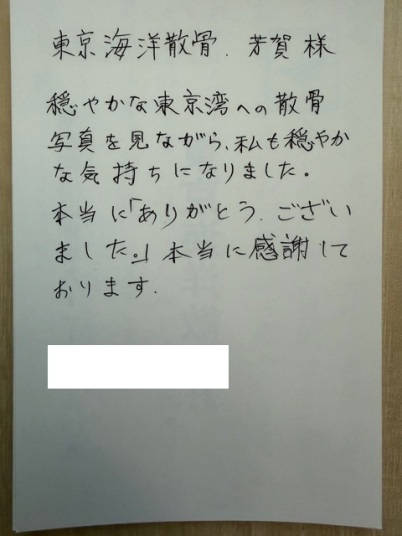 東京海洋散骨. 芳賀様
穏やかな東京湾への散骨
写真を見ながら、私も穏やか
な気持ちになりました。
本当に「ありがとう.ござい
ました。」本当に感謝して
おります.